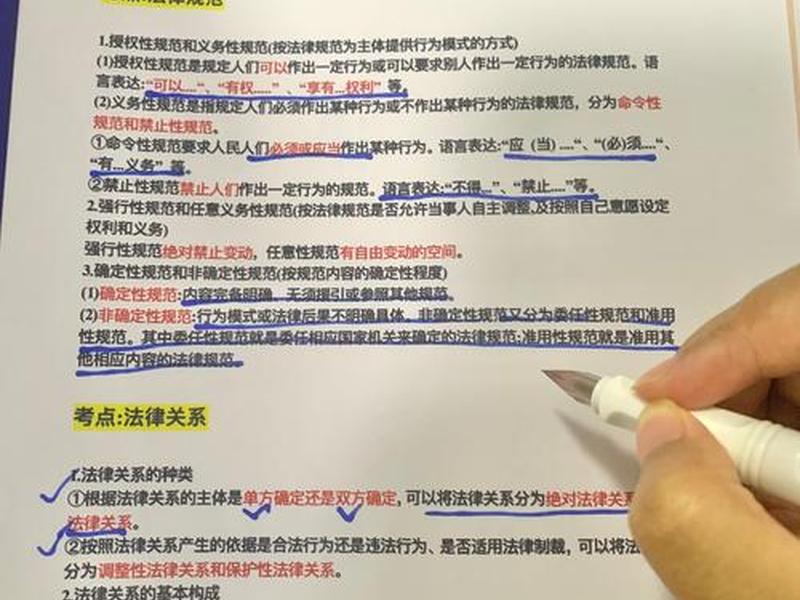 法律规范
1.授权性规范和义务性规范(按法律规范为主体提供行为模式的方式)
(1)授权性规范是规定人们可以作出一定行为或可以要求别人作出一定行为的法律规范。语
言表达:“可以....“、“有权.....”、“享有...权利” 等。
(2)义务性规范是指规定人们必须作出某种行为或不作出某种行为的法律规范，分为命令性
规范和禁止性规范。
①命令性规范要求人民人们必须或应当作出某种行为。语言表达:“应 (当) ....“、“(必)须....“、
“有...义务” 等。
②禁止性规范禁止人们作出一定行为的规范。语言表达:“不得...”、“禁止....”等。
2.强行性规范和任意义务性规范(按法律规范是否允许当事人自主调整,及按照自己意愿设定
权利和义务)
强行性规范绝对禁止变动，任意性规范有自由变动的空间。
3.确定性规范和非确定性规范(按规范内容的确定性程度)
(1)确定性规范:内容完备明确、无须援引或参照其他规范。
(2)非确定性规范:行为模式或法律后果不明确具体。非确定性规范又分为委任性规范和准用
性规范。其中委任性规范就是委任相应国家机关来确定的法律规范;准用性规范就是准用其
他相应内容的法律规范。
考点:法律关系
1.法律关系的种类
①根据法律关系的主体是单方确定还是双方确定, 可以将法律关系分为绝对法律关系
法律关系。
②按照法律关系产生的依据是合法行为还是违法行为、是否适用法律制裁，可以将法
分为调整性法律关系和保护性法律关系。
2.法律关系的基本构成